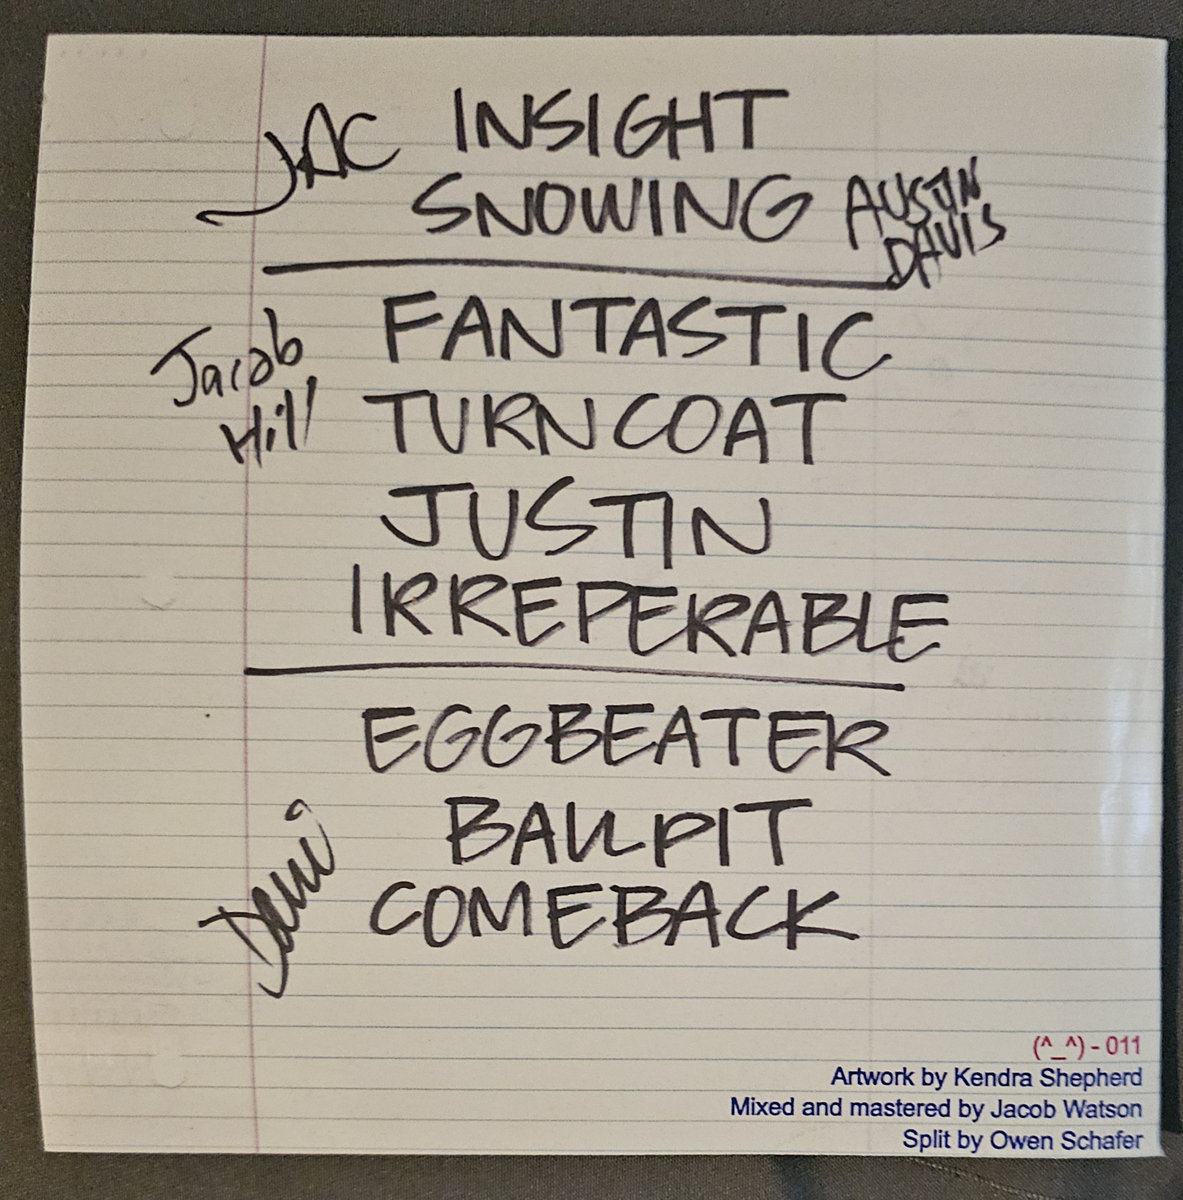 JAC
INSIGHT
SNOWING
AUSTIN
DAVIS
Jacob
Hill
FANTASTIC
TURNCOAT
JUSTIN
IRREPERABLE
EGGBEATER
BALLPIT
COMEBACK
(^_^) - 011
Artwork by Kendra Shepherd
Mixed and mastered by Jacob Watson
Split by Owen Schafer